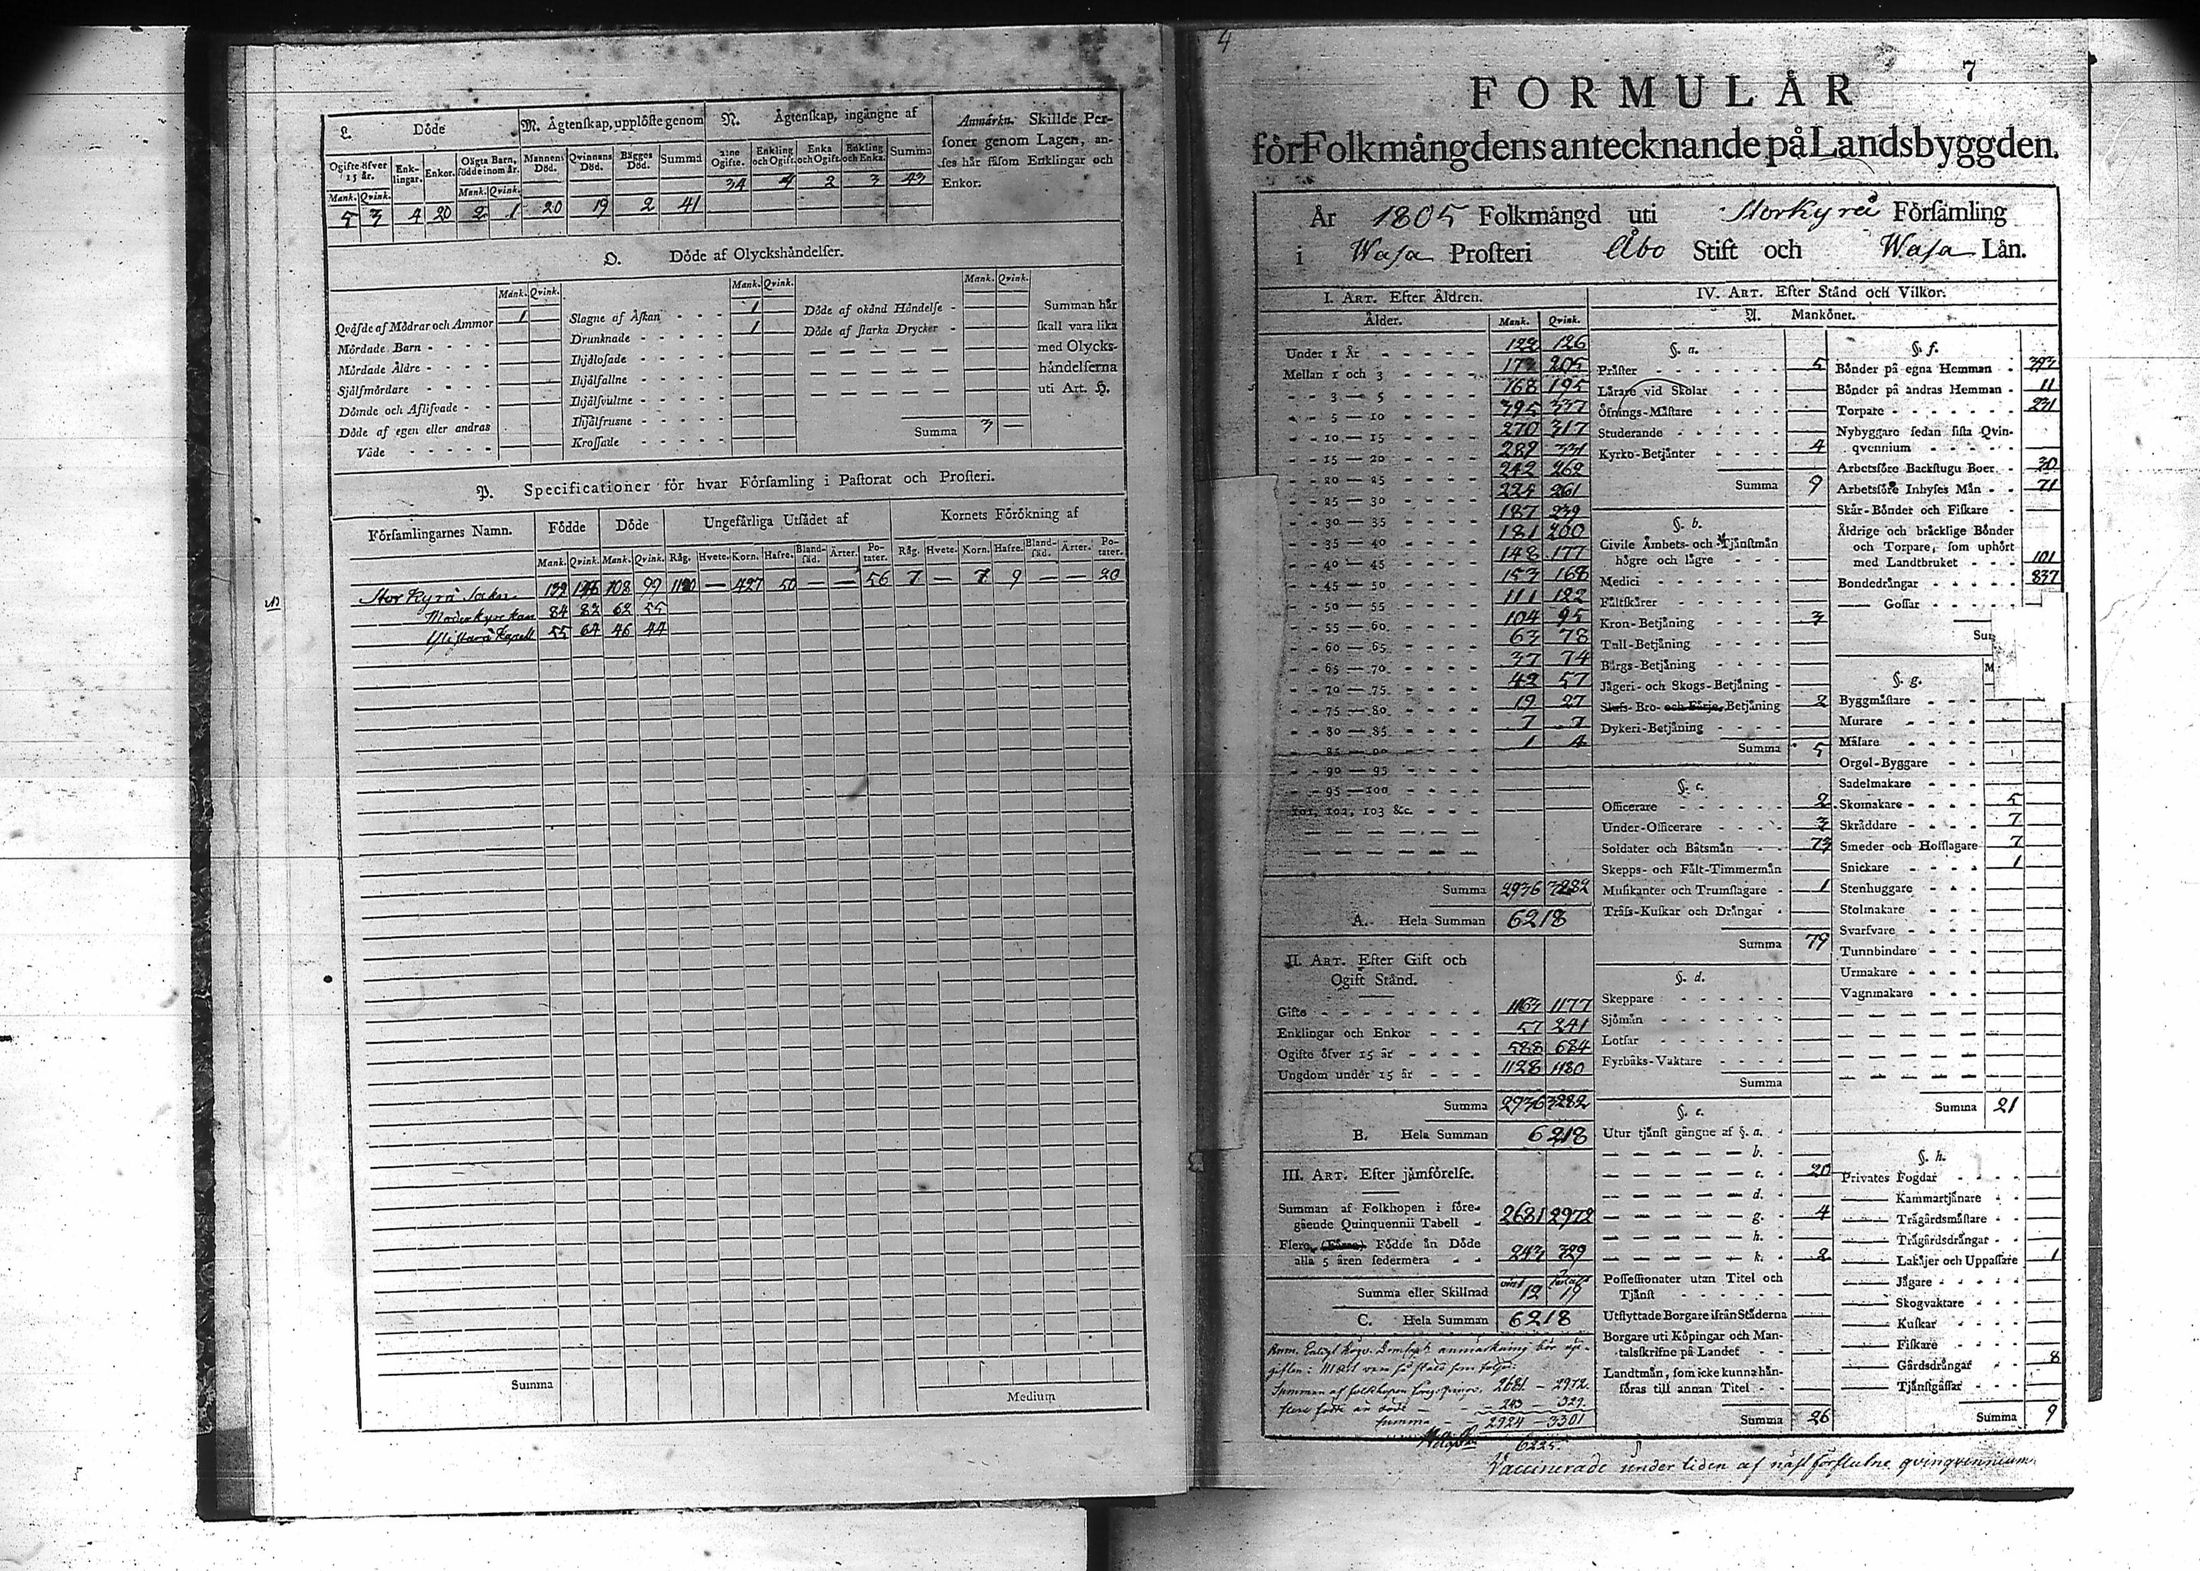 L. Döde
M. Ägtenskap, upplöste genom
N. Ägtenskap, ingångne af
Anmärkn. Skillde Per-
soner genom Lagen, an-
ses här såsom Enklingar och
Enkor.
Ogifte öfver 15 år. Enk-lingar. Enkor. Oägta Barn, födde inom år. Mannens Död. Qvinnans Död. Bägges Död. Summa 2:ne Ogifte. Enkling och Ogift. Enka och Ogift. Enkling och Enka. Summa
34 4 2 3 43
Mank. Qvink. Mank. Qvink.
5 3 4 20 2 1 20 19 2 41
O. Döde af Olyckshändelser.
Mank. Qvink. Mank. Qvink. Mank. Qvink.
Qväfde af Mödrar och Ammor 1
Mördade Barn
Mördade Äldre
Sjelfmördare
Dömde och Aflifvade
Döde af egen eller andras
Våde
Slagne af Åskan 1
Drunknade 1
Ihjälosade
Ihjälfallne
Ihjälsvultne
Ihjälfrusne
Krossade
Döde af okänd Händelse
Döde af starka Drycker
Summa 3 —
Summan här
skall vara lika
med Olycks-
händelserna
uti Art. H.
P. Specificationer för hvar Församling i Pastorat och Prosteri.
Församlingarnes Namn. Födde Döde Ungefärliga Utsädet af Kornets Förökning af
Mank. Qvink. Mank. Qvink. Råg. Hvete. Korn. Hafre. Bland-säd. Ärter. Po-tater. Råg. Hvete. Korn. Hafre. Bland-säd. Ärter. Po-tater.
Stor Kyrå Sokn 108 99 — 427 50 — — 56 7 — 7 9 — — 20
Moderkyrkan 84 82 62 55
Kapell 55 64 46 44
Summa
Medium
4
7
FORMULÄR
för Folkmängdens antecknande på Landsbyggden.
År 1805 Folkmängd uti Storkyrå Församling
i Wasa Prosteri Åbo Stift och Wasa Län.
I. ART. Efter Åldren.
Ålder. Mank. Qvink.
Under 1 År 122 126
Mellan 1 och 3 173 205
3 — 5 168 195
5 — 10 395 337
10 — 15 270 317
15 — 20 289 331
20 — 25 242 262
25 — 30 224 261
30 — 35 187 239
35 — 40 181 200
40 — 45 148 177
45 — 50 153 168
50 — 55 111 122
55 — 60 104 95
60 — 65 63 78
65 — 70 37 74
70 — 75 42 57
75 — 80 19 27
80 — 85 7 7
85 — 90 1 4
90 — 95
95 — 100
101, 102, 103 &c.
Summa 2936 3282
A. Hela Summan 6218
II. ART. Efter Gift och
Ogift Stånd.
Gifte 1163 1177
Enklingar och Enkor 57 241
Ogifte öfver 15 år 588 684
Ungdom under 15 år 1128 1180
Summa 2936 3282
B. Hela Summan 6218
III. ART. Efter jämförelse.
Summan af Folkhopen i före-
gående Quinquennii Tabell 2681 2972
Flere (Färre) Födde än Döde
alla 5 åren sedermera 243 329
Summa eller Skillnad 12 19
C. Hela Summan 6218
Summan af folkhopen 2681 — 2972.
flere födde än döde 243 — 329.
Summa 2924 — 3301
6225.
IV. ART. Efter Stånd och Vilkor.
A. Mankönet.
§. a.
Präster 5
Lärare vid Skolar
Öfnings-Mästare
Studerande
Kyrko-Betjänter 4
Summa 9
§. b.
Civile Ämbets- och Tjänstmän
högre och lägre
Medici
Fältskärer
Kron-Betjäning 3
Tull-Betjäning
Bärgs-Betjäning
Jägeri- och Skogs-Betjäning
Sluss- Bro- och Färje-Betjäning 2
Dykeri-Betjäning
Summa 5
§. c.
Officerare 2
Under-Officerare 3
Soldater och Båtsmän 73
Skepps- och Fält-Timmermän
Musikanter och Trumslagare 1
Träss-Kuskar och Drängar
Summa 79
§. d.
Skeppare
Sjömän
Lotsar
Fyrbåks-Vaktare
Summa
§. e.
Utur tjänst gångne af §. a.
— — — — — b.
— — — — — c. 20
— — — — — d.
— — — — — g. 4
— — — — — h.
— — — — — k. 2
Possessionater utan Titel och
Tjänst
Utflyttade Borgare ifrån Städerna
Borgare uti Köpingar och Man-
talsskrifne på Landet
Landtmän, som icke kunna hän-
föras till annan Titel
Summa 26
§. f.
Bönder på egna Hemman 393
Bönder på andras Hemman 11
Torpare 231
Nybyggare sedan sista Qvin-
qvennium
Arbetsföre Backstugu Boer 30
Arbetsföre Inhyses Män 71
Skär-Bönder och Fiskare
Äldrige och bräcklige Bönder
och Torpare, som uphört
med Landtbruket 101
Bondedrängar 837
— Gossar
§. g.
Byggmästare
Murare
Målare
Orgel-Byggare
Sadelmakare
Skomakare 5
Skräddare 7
Smeder och Hofslagare 7
Snickare 1
Stenhuggare
Stolmakare
Svarfvare
Tunnbindare
Urmakare
Vagnmakare
Summa 21
§. h.
Privates Fogdar
— Kammartjänare
— Trägårdsmästare
— Trägårdsdrängar
— Lakäjer och Uppassare 1
— Jägare
— Skogvaktare
— Kuskar
— Fiskare
— Gårdsdrängar 8
— Tjänstgässar
Summa 9
Vaccinerade under tiden af näst förflutne qvinqvennium